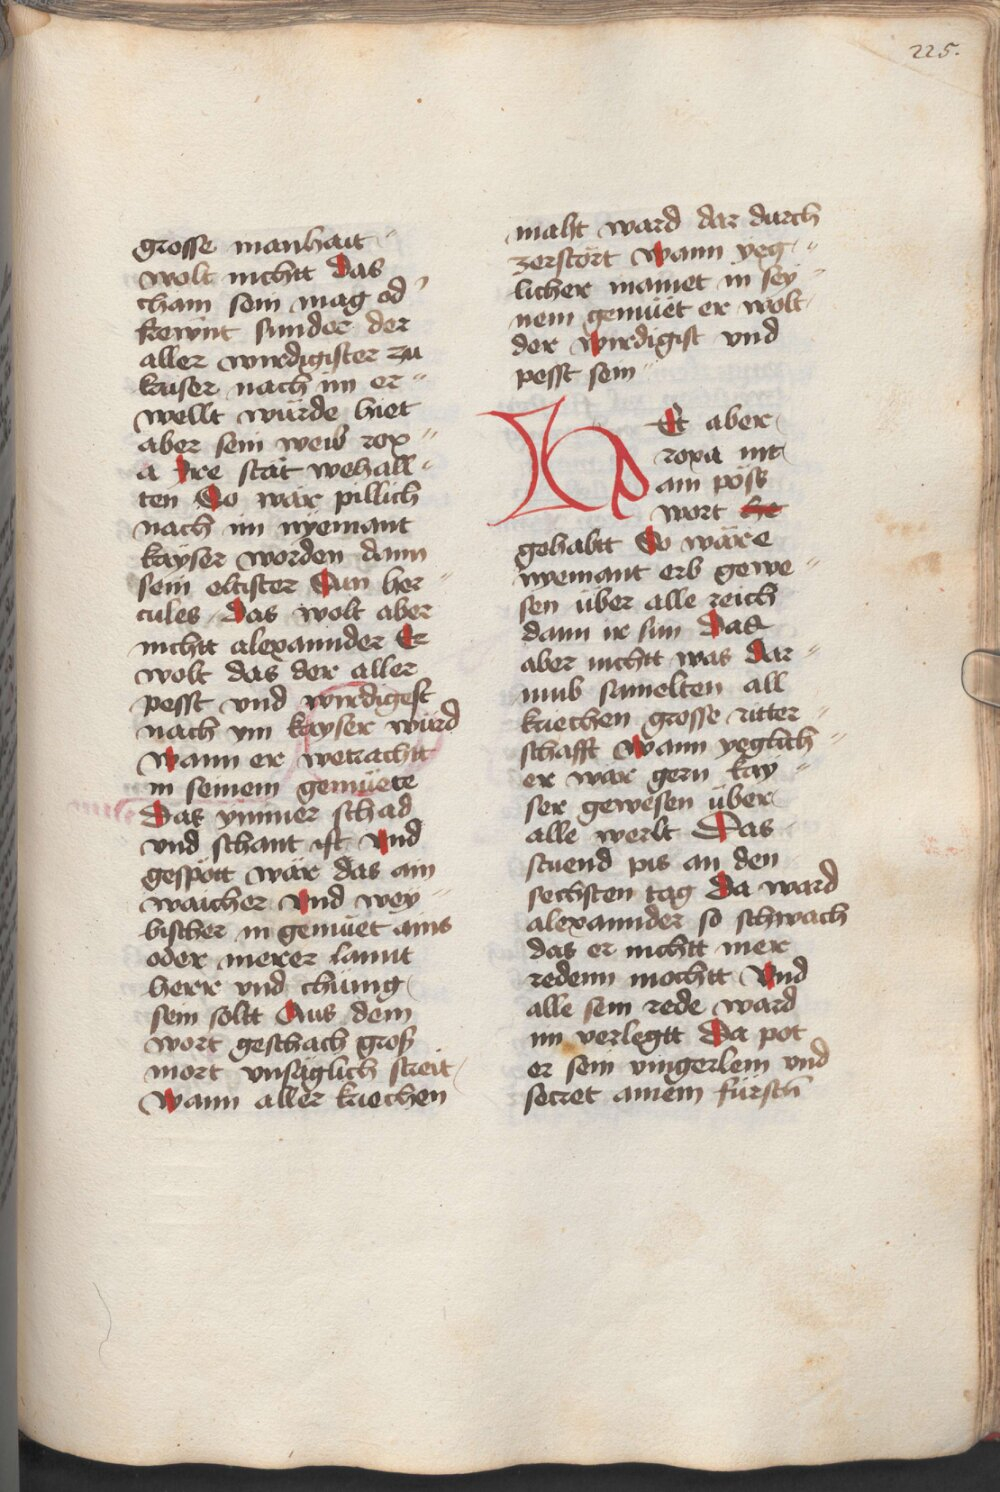 225.
grosse manhait
wolt nichtt Das
cham sein mag od
kewnt sunder der
aller wirdigister zu
kaiser nach im er
wellt würde hiet
aber sein weib rox
a Ire stät wehall
ten So wär pillich
nach im nyemant
kayser worden dann
sein eltister Sun her
cules Das wolt aber
nichtt alexannder Er
wolt das der aller
pesst vnd wirdigest
nach ym kayser würd
Wann er wetrachtt
in seinem gemüete
Das ymmer schad
vnd schant ist Vnd
gespött wär das ain
waicher Vnd wey
bischer in gemüet ains
oder merer lannt
herr vnd chünig
sein soltt Aus dem
wort geschach gros
mort vnsäglich streit
Wann aller kriechen
maht ward dar durch
zerstört Wann yeg
licher mainet in sey
nem gemüet er wolt
der wirdigist vnd
pesst sein
Et aber
roxa nit
ain pöss
wort he
gehabtt So wäre
nyemant erb gewe
sen über alle reich
dann ir sun Das
aber nichtt was Dar
umb samelten all
kriechen grosse ritter
schafft Wann yeglich
er wär gern kay
ser gewesen über
alle werlt Das
stuend pis an den
sechsten tag Da ward
alexannder so schwach
das er nichtt mer
redenn mochtt Vnd
alle sein rede ward
im verlegtt Da pot
er sein vingerlein vnd
secret ainem fürsth